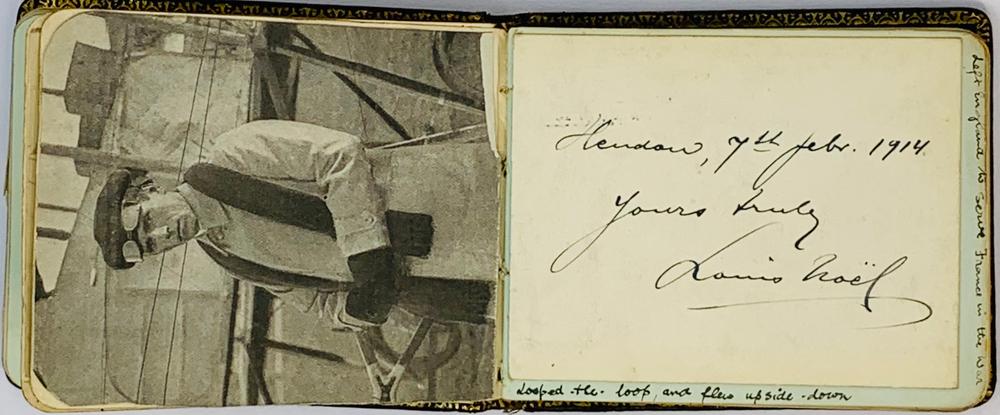 Hendon, 7th Febr. 1914.
Yours truly
Louis Noël
Looped the loop, and flew upside-down
Left England to serve France in the War